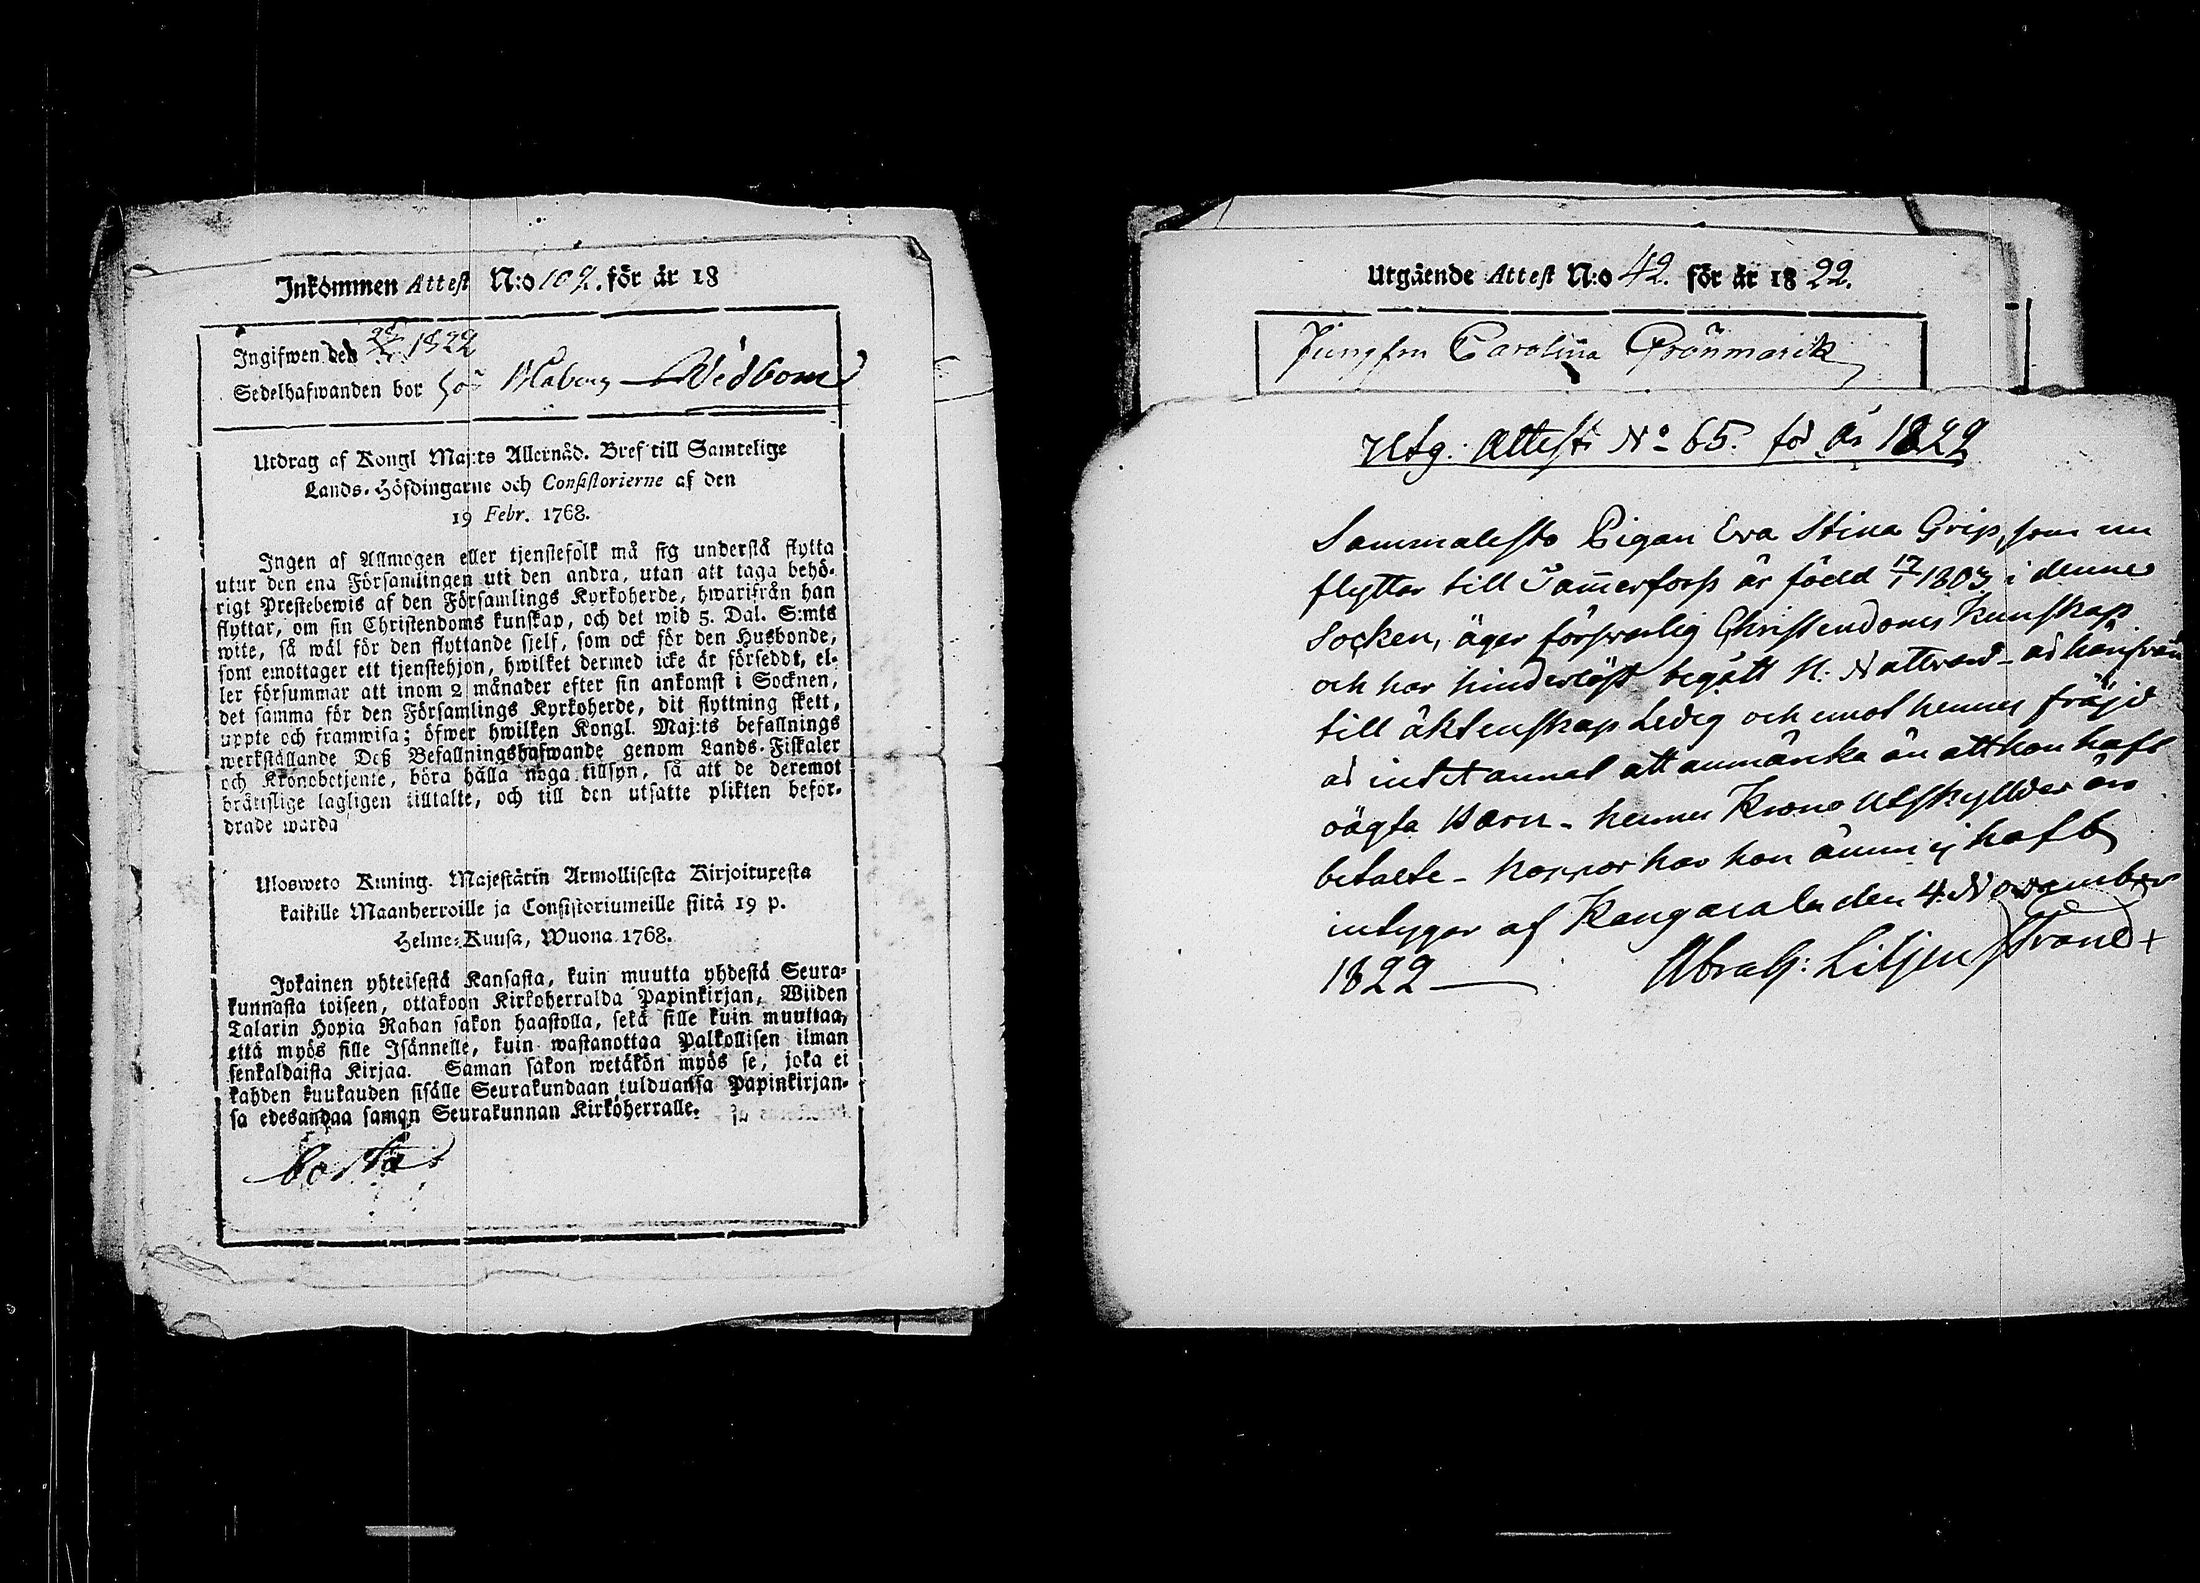 Inkommen Attest N:o 102. för år 18
Ingifwen den 1822
Sedelhafwanden bor hos Wedbom
Utdrag af Kongl Maj:ts Allernåd. Bref till Samtelige
Lands-Höfdingarne och Consistorierne af den
19 Febr. 1768.
Ingen af Allmogen eller tjenstefolk må sig understå flytta
utur den ena Församlingen uti den andra, utan att taga behö-
rigt Prestebewis af den Församlings Kyrkoherde, hwarifrån han
flyttar, om sin Christendoms kunskap, och det wid 5. Dal. S:mts
wite, så wäl för den flyttande sjelf, som ock för den Husbonde,
som emottager ett tjenstehjon, hwilket dermed icke är försedt, el-
ler försummar att inom 2 månader efter sin ankomst i Socknen,
det samma för den Församlings Kyrkoherde, dit flyttning skett,
uppte och framwisa; öfwer hwilken Kongl. Maj:ts befallnings
werkställande Deß Befallningshafwande genom Lands-Fiskaler
och Kronobetjente, böra hålla noga tillsyn, så att de deremot
bråttslige lagligen tilltalte, och till den utsatte plikten befor-
drade warda
Ulosweto Kuning. Majestätin Armollisesta Kirjoituxesta
kaikille Maanherroille ja Consistoriumeille siitä 19 p.
Helme-Kuusa, Wuona 1768.
Jokainen yhteisestä Kansasta, kuin muutta yhdestä Seura-
kunnasta toiseen, ottakoon Kirkoherralda Papinkirjan, Wiiden
Talarin Hopia Rahan sakon haastolla, sekä sille kuin muuttaa,
että myös sille Isännelle, kuin wastanottaa Palkollisen ilman
senkaldaista Kirjaa. Saman sakon wetäkön myös se, joka ei
kahden kuukauden sisälle Seurakundaan tulduansa Papinkirjan-
sa edesandaa saman Seurakunnan Kirkoherralle.
Utgående Attest N:o 42. för år 1822.
Jungfru Carolina Grönmarck
Utg. Attest No 65. för År 1822
Sammaledes Pigan Eva Stina Grip, som nu
flyttar till Tammerforss är född 17/1 1803 i denne
Socken, äger försvarlig Christendoms Kunskap
och har hinderlöst begått H. Nattvard - är härifrån
till äktenskap Ledig och emot hennes fräjd
är intet annat att anmärka än att hon haft
oägta Barn - hennes Krono Utskyllder äro
betalte - koppor har hon ännu ej haft
intygar af Kangasala den 4. November
1822 Abrah: Liljenstrand